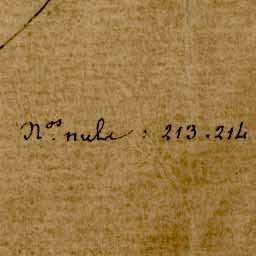 N.os nuli : 213.214